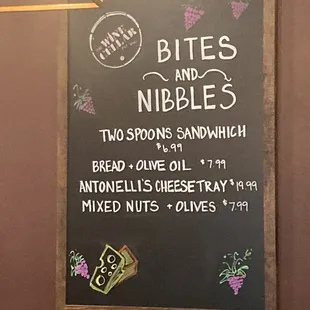 THE WINE CELLAR
BITES
AND
NIBBLES
TWO SPOONS SANDWHICH
$6.99
BREAD + OLIVE OIL $7.99
ANTONELLI'S CHEESETRAY $19.99
MIXED NUTS + OLIVES $7.99